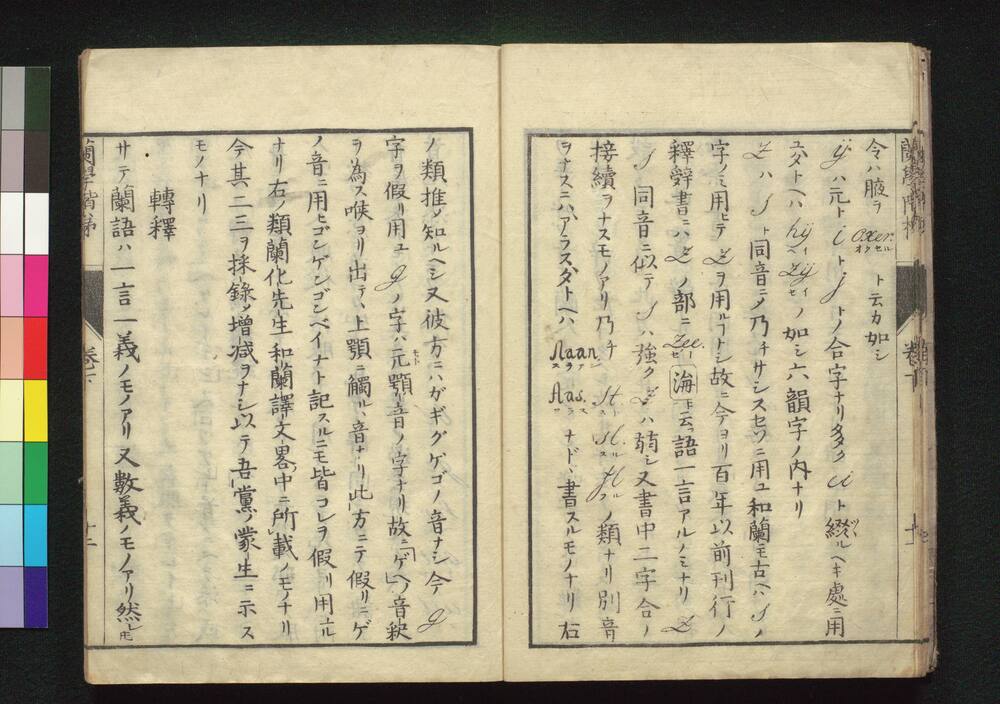 令ハ腋ヲ oxer. オクセル ト云カ如シ
ÿハ元ト i ト j トノ合字ナリ多ク ii ト綴ルヘキ處ニ用
ユタトヘハ hÿ ヘイ zÿ セイ ノ如シ六韻字ノ内ナリ
Z ハ ſ ト同音ニノ乃チサシスセソニ用ユ和蘭モ古ヘハ ſ ノ
字ノミ用ヒテ Z ヲ用ルフトシ故ニ今ヨリ百年以前刊行ノ
釋辞書ニハ Z ノ部ニ zee. セー 海ト云フ語一言アルノミナリ Z
ſ 同音ニ似テ ſ ハ強ク Z ハ弱シ又書中二字合ノ
接續ヲナスモノアリ乃チ ノ類ナリ別音
ヲナスニハアラスタトヘハ Aaan. Aas. ナド、書スルモノナリ右
ノ類推メ知ルヘシ又彼方ニハガギグゲゴノ音ナシ今 g
字ヲ假リ用ユ g ノ字ハ元顎音ノ字ナリ故ニ「ゲヘ」ノ音釈
ヲ為ス喉ヨリ出テ、上顎ニ觸ル音ナリ此方ニテ假リニゲ
ノ音ニ用ヒゴンゲンゴンベイナト記スルニモ皆コレヲ假リ用ル
ナリ右ノ類蘭化先生和蘭譯文畧中ニ所載ノモノナリ
今其二三ヲ採録メ増減ヲナシ以テ吾黨ノ蒙生ニ示ス
モノナリ
轉釋
サテ蘭語ハ一言一義ノモノアリ又數義ノモノアリ然レモ
蘭學階梯 卷下